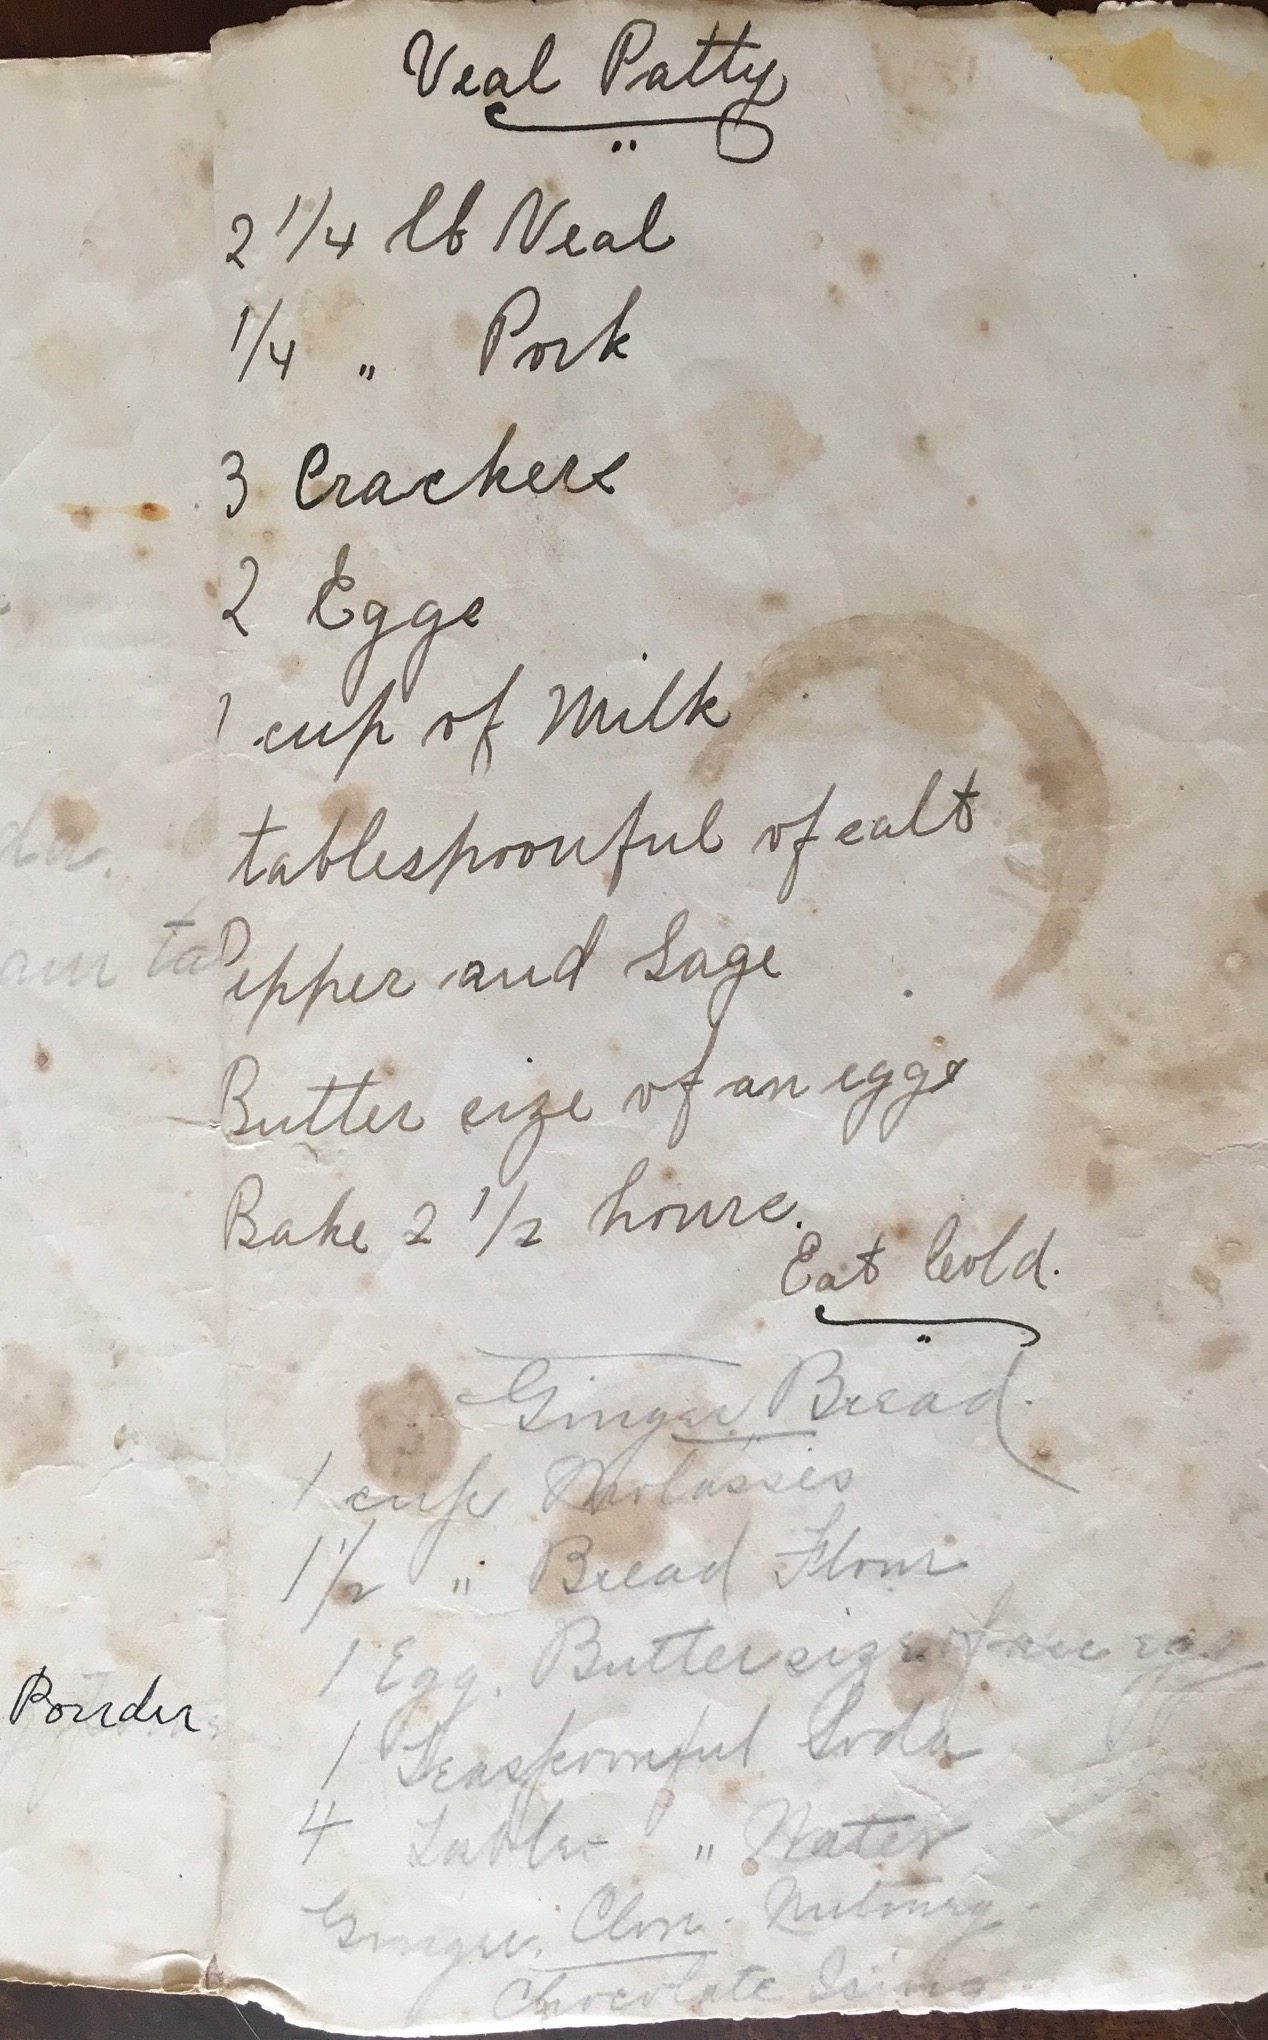 Veal Patty
2 1/4 lb Veal
1/4 " Pork
3 Crackers
2 Eggs
1 cup of Milk
tablespoonful of salt
Pepper and Sage
Butter size of an eggs
Bake 2 1/2 hours.
Eat Cold.
Ginger Bread.
1 cup Molasses
1 1/2 " Bread Flour
1 Egg. Butter size of an egg
1 Teaspoonful Soda
4 Table " Water
Ginger. Clove. Nutmeg.
Chocolate Icing
da.
am ta
Powder